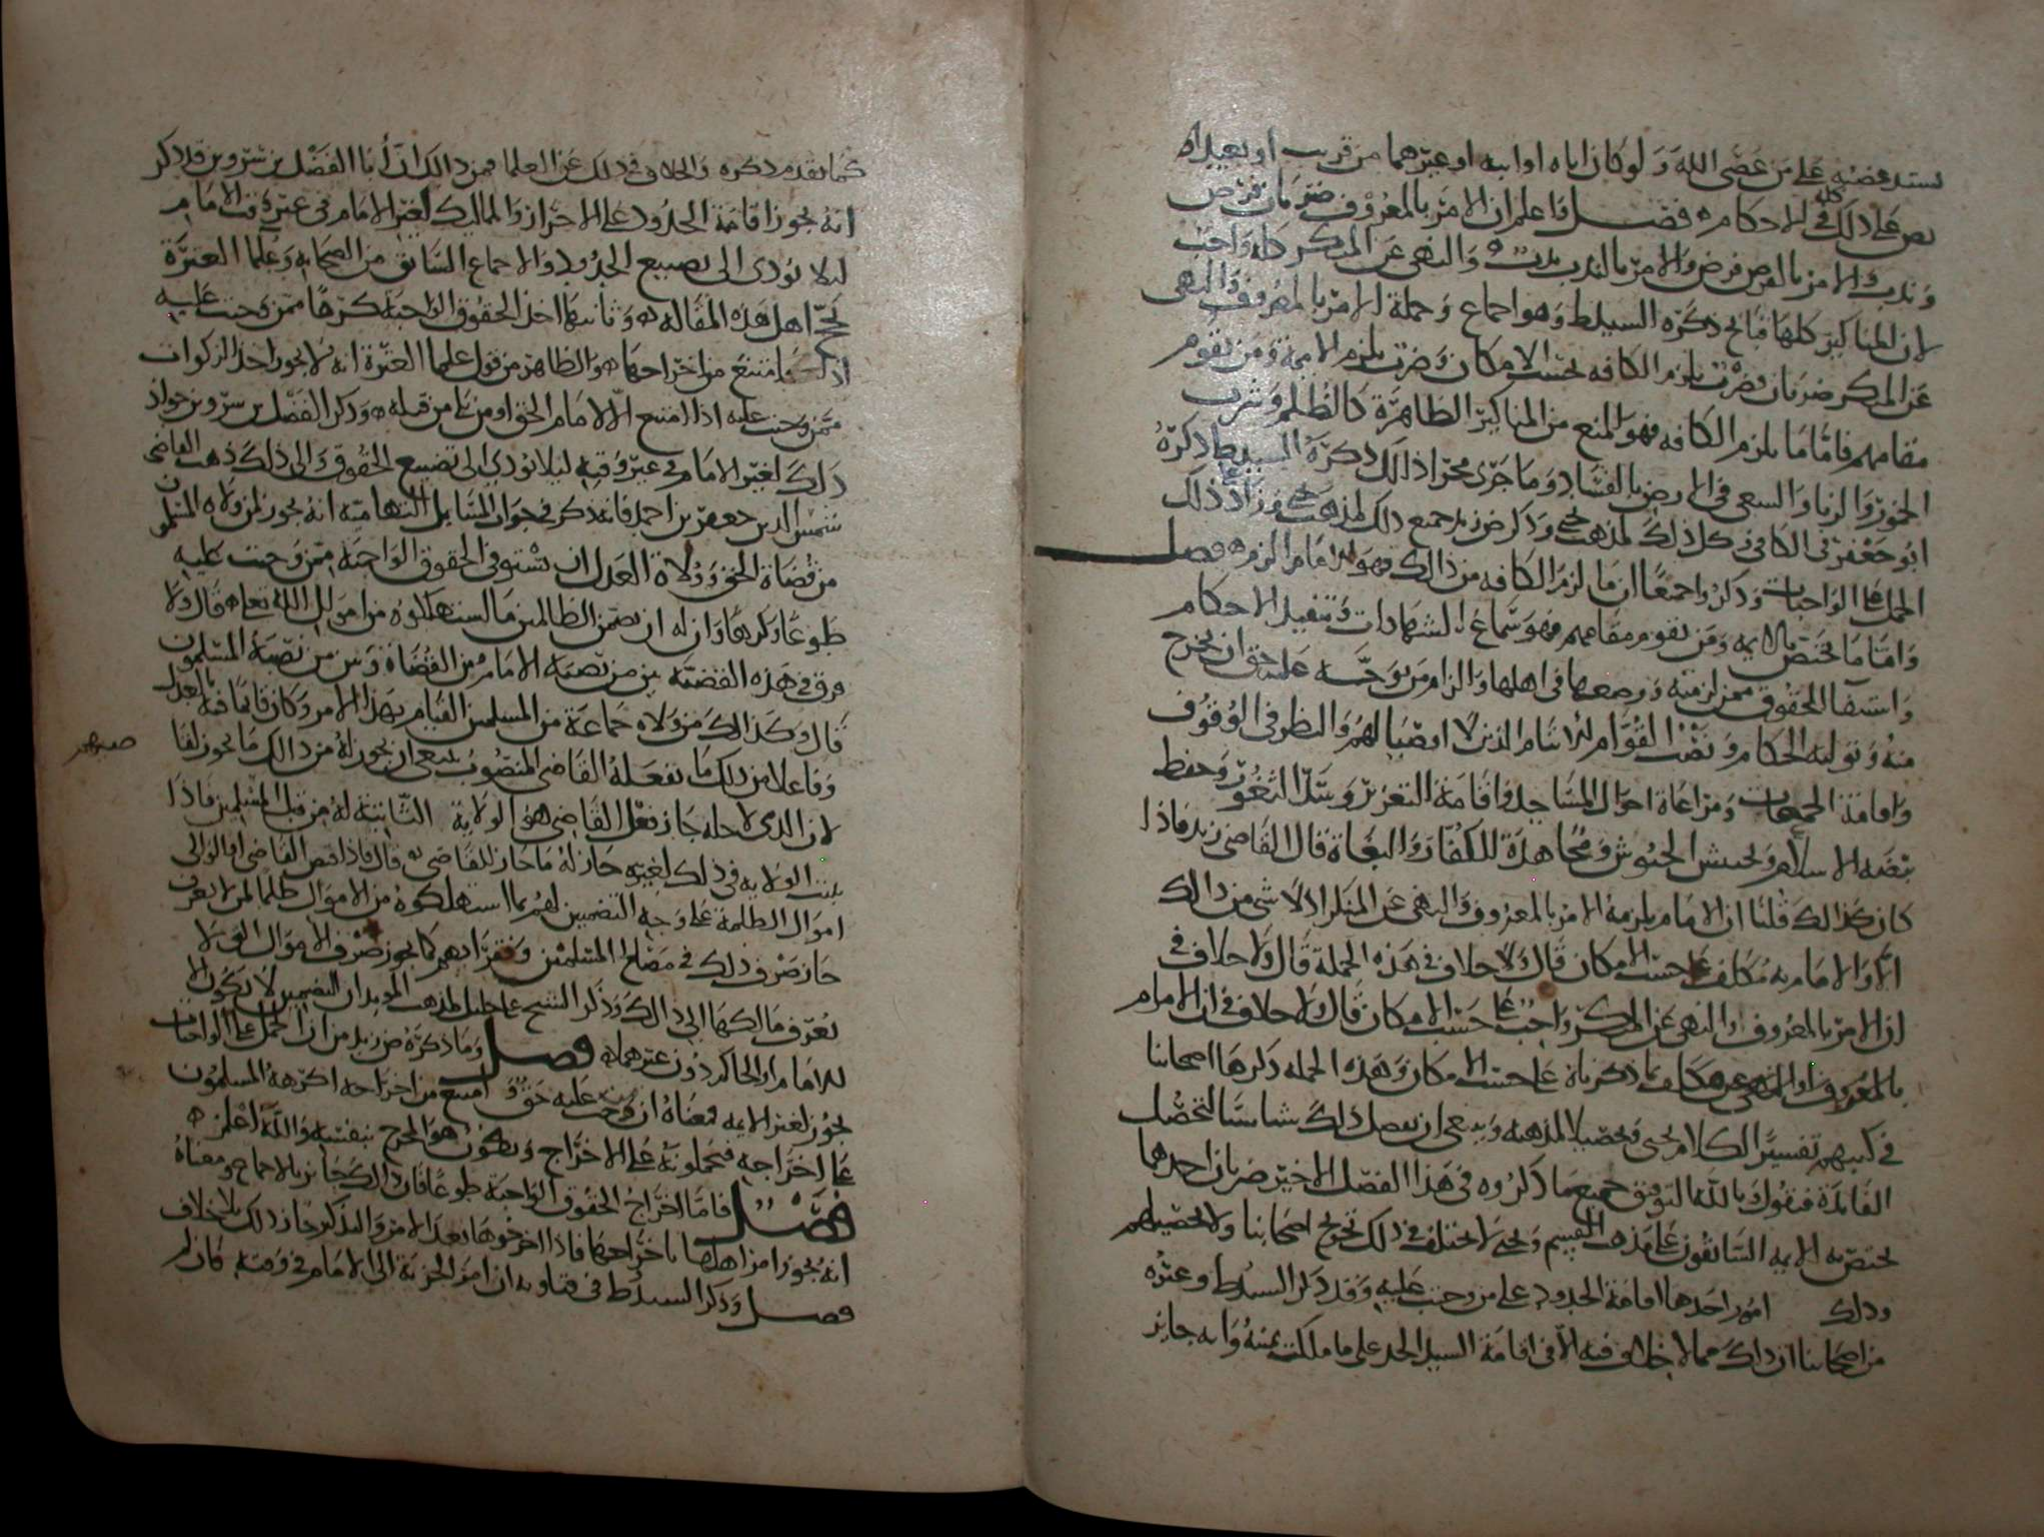 يشتد غضبه على من عصى الله ولو كان اباه او ابنه او غيرهما من قريب او بعيد
نص على ذلك كله في الاحكام فصل واعلم ان الامر بالمعروف ضربان فرض
وندب والامر بالفرض فرض والامر بالندب ندب والنهي عن المنكر كله واجب
لان المناكير كلها قبائح ذكره السيد ط وهو اجماع وجملة الامر بالمعروف والنهي
عن المنكر ضربان ضرب يلزم الكافه بحسب الامكان وضرب يلزم الايمة ومن يقوم
مقامهم فاما ما يلزم الكافه فهو المنع من المناكير الظاهرة كالظلم وشرب
الخمر والزنا والسعي في الارض بالفساد وما جرى مجرى ذالك ذكره السيد ط وذكره
ابو جعفر في الكافي كل ذلك لمذهب يحيى وذكر ض زيد جميع ذلك لمذهب يحيى وزاد ذلك
الحمل على الواجبات وذكروا جميعا ان ما لزم الكافه من ذالك فهو للامام الزم فصل
واما ما يختص بالايمه ومن يقوم مقامهم فهو سماع الشهادات وتنفيذ الاحكام
واستيفا الحقوق ممن لزمته ووضعها في اهلها والزام من توجب عليه حق ان يخرج
منه وتوليه الحكام ونصب القوام للايتام الذين لا اوصيا لهم والنظر في الوقوف
واقامة الجمعات ومراعاة احوال المساجد واقامة التعزير وسد الثغور وحفظ
بيضة الاسلام وتجييش الجيوش ومجاهدة للكفار والبغاة قال القاضي زيد فاذا
كان كذالك قلنا ان الامام يلزمه الامر بالمعروف والنهي عن المنكر اذ لا شي من ذالك
الا والامام به مكلف على حسب الامكان قال ولا خلاف في هذه الجملة قال ولا خلاف في
ان الامر بالمعروف والنهي عن المنكر واجب على حسب الامكان قال ولا خلاف في ان الامام
بالمعروف والنهي عن مكلف بما ذكرناه على حسب الامكان وهذه الجمله ذكرها اصحابنا
في كتبهم تفسيرا لكلام يحيى وتحصيلا لمذهبه وينبغي ان يفصل ذلك
الفايدة فنقول بالله التوفيق جميع ما ذكروه في هذا الفصل الاخير ضربان احدهما
يختص به الايمه السابقون على مذهب القسم ويحيى لا يختلف في ذلك تخريج اصحابنا ولا تحصيلهم
وذلك امور احدها اقامة الحدود على من وجبت عليه وقد ذكر السيد ط وغيره
من اصحابنا ان ذلك مما لا خلاف فيه الا في اقامة السيد الحد على ما ملكت يمينه وانه جايز
كما تقدم ذكره والخلاف في ذلك عن العلما فمن ذالك ان ابا الفضل بن شروين قد ذكر
انه يجوز اقامة الحدود على الاحرار والمماليك لغير الامام في غير وقت الامام
ليلا يؤدي الى تضييع الحدود والاجماع السابق من الصحابه وعلما العترة
يحج اهل هذه المقاله وثانيها اخذ الحقوق الواجبة كرها ممن وجبت عليه
اذا امتنع من اخراجها والظاهر من قول علما العترة انه لا يجوز اخذ الزكوات
ممن وجبت عليه اذا امتنع الا لامام الحق او من يلي من قبله وذكر ابو الفضل بن شروين جواز
ذلك لغير الامام في غير وقته ليلا يؤدي الى تضييع الحقوق والى ذلك ذهب القاضي
شمس الدين جعفر بن احمد فانه ذكر في جواب المسايل التهامية انه يجوز لمن ولاه المسلمون
من قضاة الحق وولاة العدل ان يستوفي الحقوق الواجبة ممن وجبت عليه
طوعا وكرها وان له ان يضمن الظالمين ما استهلكوه من اموال الله تعالى قال ولا
فرق في هذه القضية بين من نصبه الامام من القضاة وبين من نصبه المسلمون
قال وكذالك من ولاه جماعة من المسلمين القيام بهذا الامر وكان قايما فيه بالعدل
وفاعلا من ذلك ما يفعله القاضي المنصوب ينبغي ان يجوز له من ذالك ما يجوز لقا
ضيهم
لان الذي لاجله جاز فعل القاضي هو الولاية الثابتة له من قبل المسلمين فاذا
ثبتت الولايه في ذلك لغيره جاز له ما جاز للقاضي قال فاذا قبض القاضي او الوالي
اموال الظلمة على وجه التضمين لهم بما استهلكوه من الاموال ظلما لمن لا يعرف
جاز صرف ذلك في مصالح المسلمين وفقرايهم كما يجوز صرف الاموال التي لا
يعرف مالكها الى ذالك وذكر الشيخ علي خليل لمذهب المويد ان التضمين لا يكون الا
للامام او الحاكم دون غيرهما فصل وما ذكره ض زيد من ان الحمل على الواجبات
يجوز لغير الايمه فمعناه ان من وجب عليه حق وامتنع من اخراجه اكرهه المسلمون
على اخراجه فيحملونه على الاخراج ويكون هو المخرج بنفسه والله اعلم
فصل فاما اخراج الحقوق الواجبة طوعا فان ذالك جايز بالاجماع ومعناه
انه يجوز امر اهلها باخراجها فاذا اخرجوها بعد الامر والتذكير جاز ذلك بلا خلاف
فصل وذكر السيد ط في فتاويه ان امر الجزية الى الامام في وقته فان لم